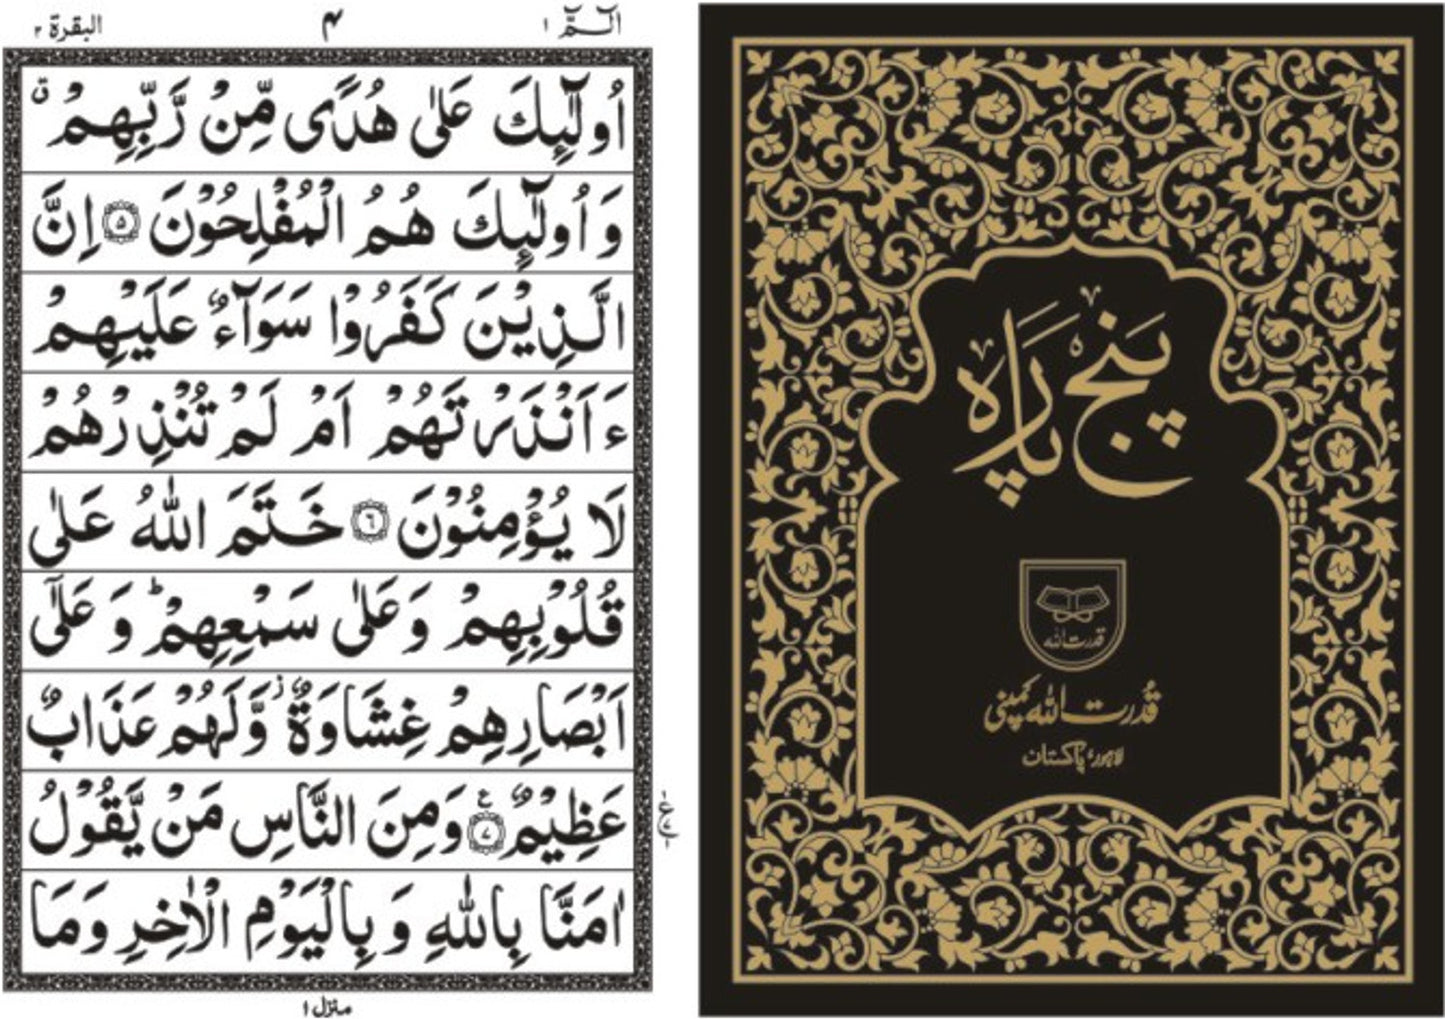 الٓمّٓ ١
٤
البقرة ٢
اُولٰٓئِكَ عَلٰى هُدًى مِّنْ رَّبِّهِمْ ۗ
وَ اُولٰٓئِكَ هُمُ الْمُفْلِحُوْنَ ۝٥ اِنَّ
الَّذِيْنَ كَفَرُوْا سَوَآءٌ عَلَيْهِمْ
ءَاَنْذَرْتَهُمْ اَمْ لَمْ تُنْذِرْهُمْ
لَا يُؤْمِنُوْنَ ۝٦ خَتَمَ اللّٰهُ عَلٰى
قُلُوْبِهِمْ وَعَلٰى سَمْعِهِمْ ؕ وَ عَلٰٓى
اَبْصَارِهِمْ غِشَاوَةٌ ؗ وَّلَهُمْ عَذَابٌ
عَظِيْمٌ ۝٧ ع وَمِنَ النَّاسِ مَنْ يَّقُوْلُ
اٰمَنَّا بِاللّٰهِ وَ بِالْيَوْمِ الْاٰخِرِ وَمَا
منزل ١
پَنج پَارَہ
قدرت اللہ
قُدرت اللہ کمپنی
لاہور، پاکستان